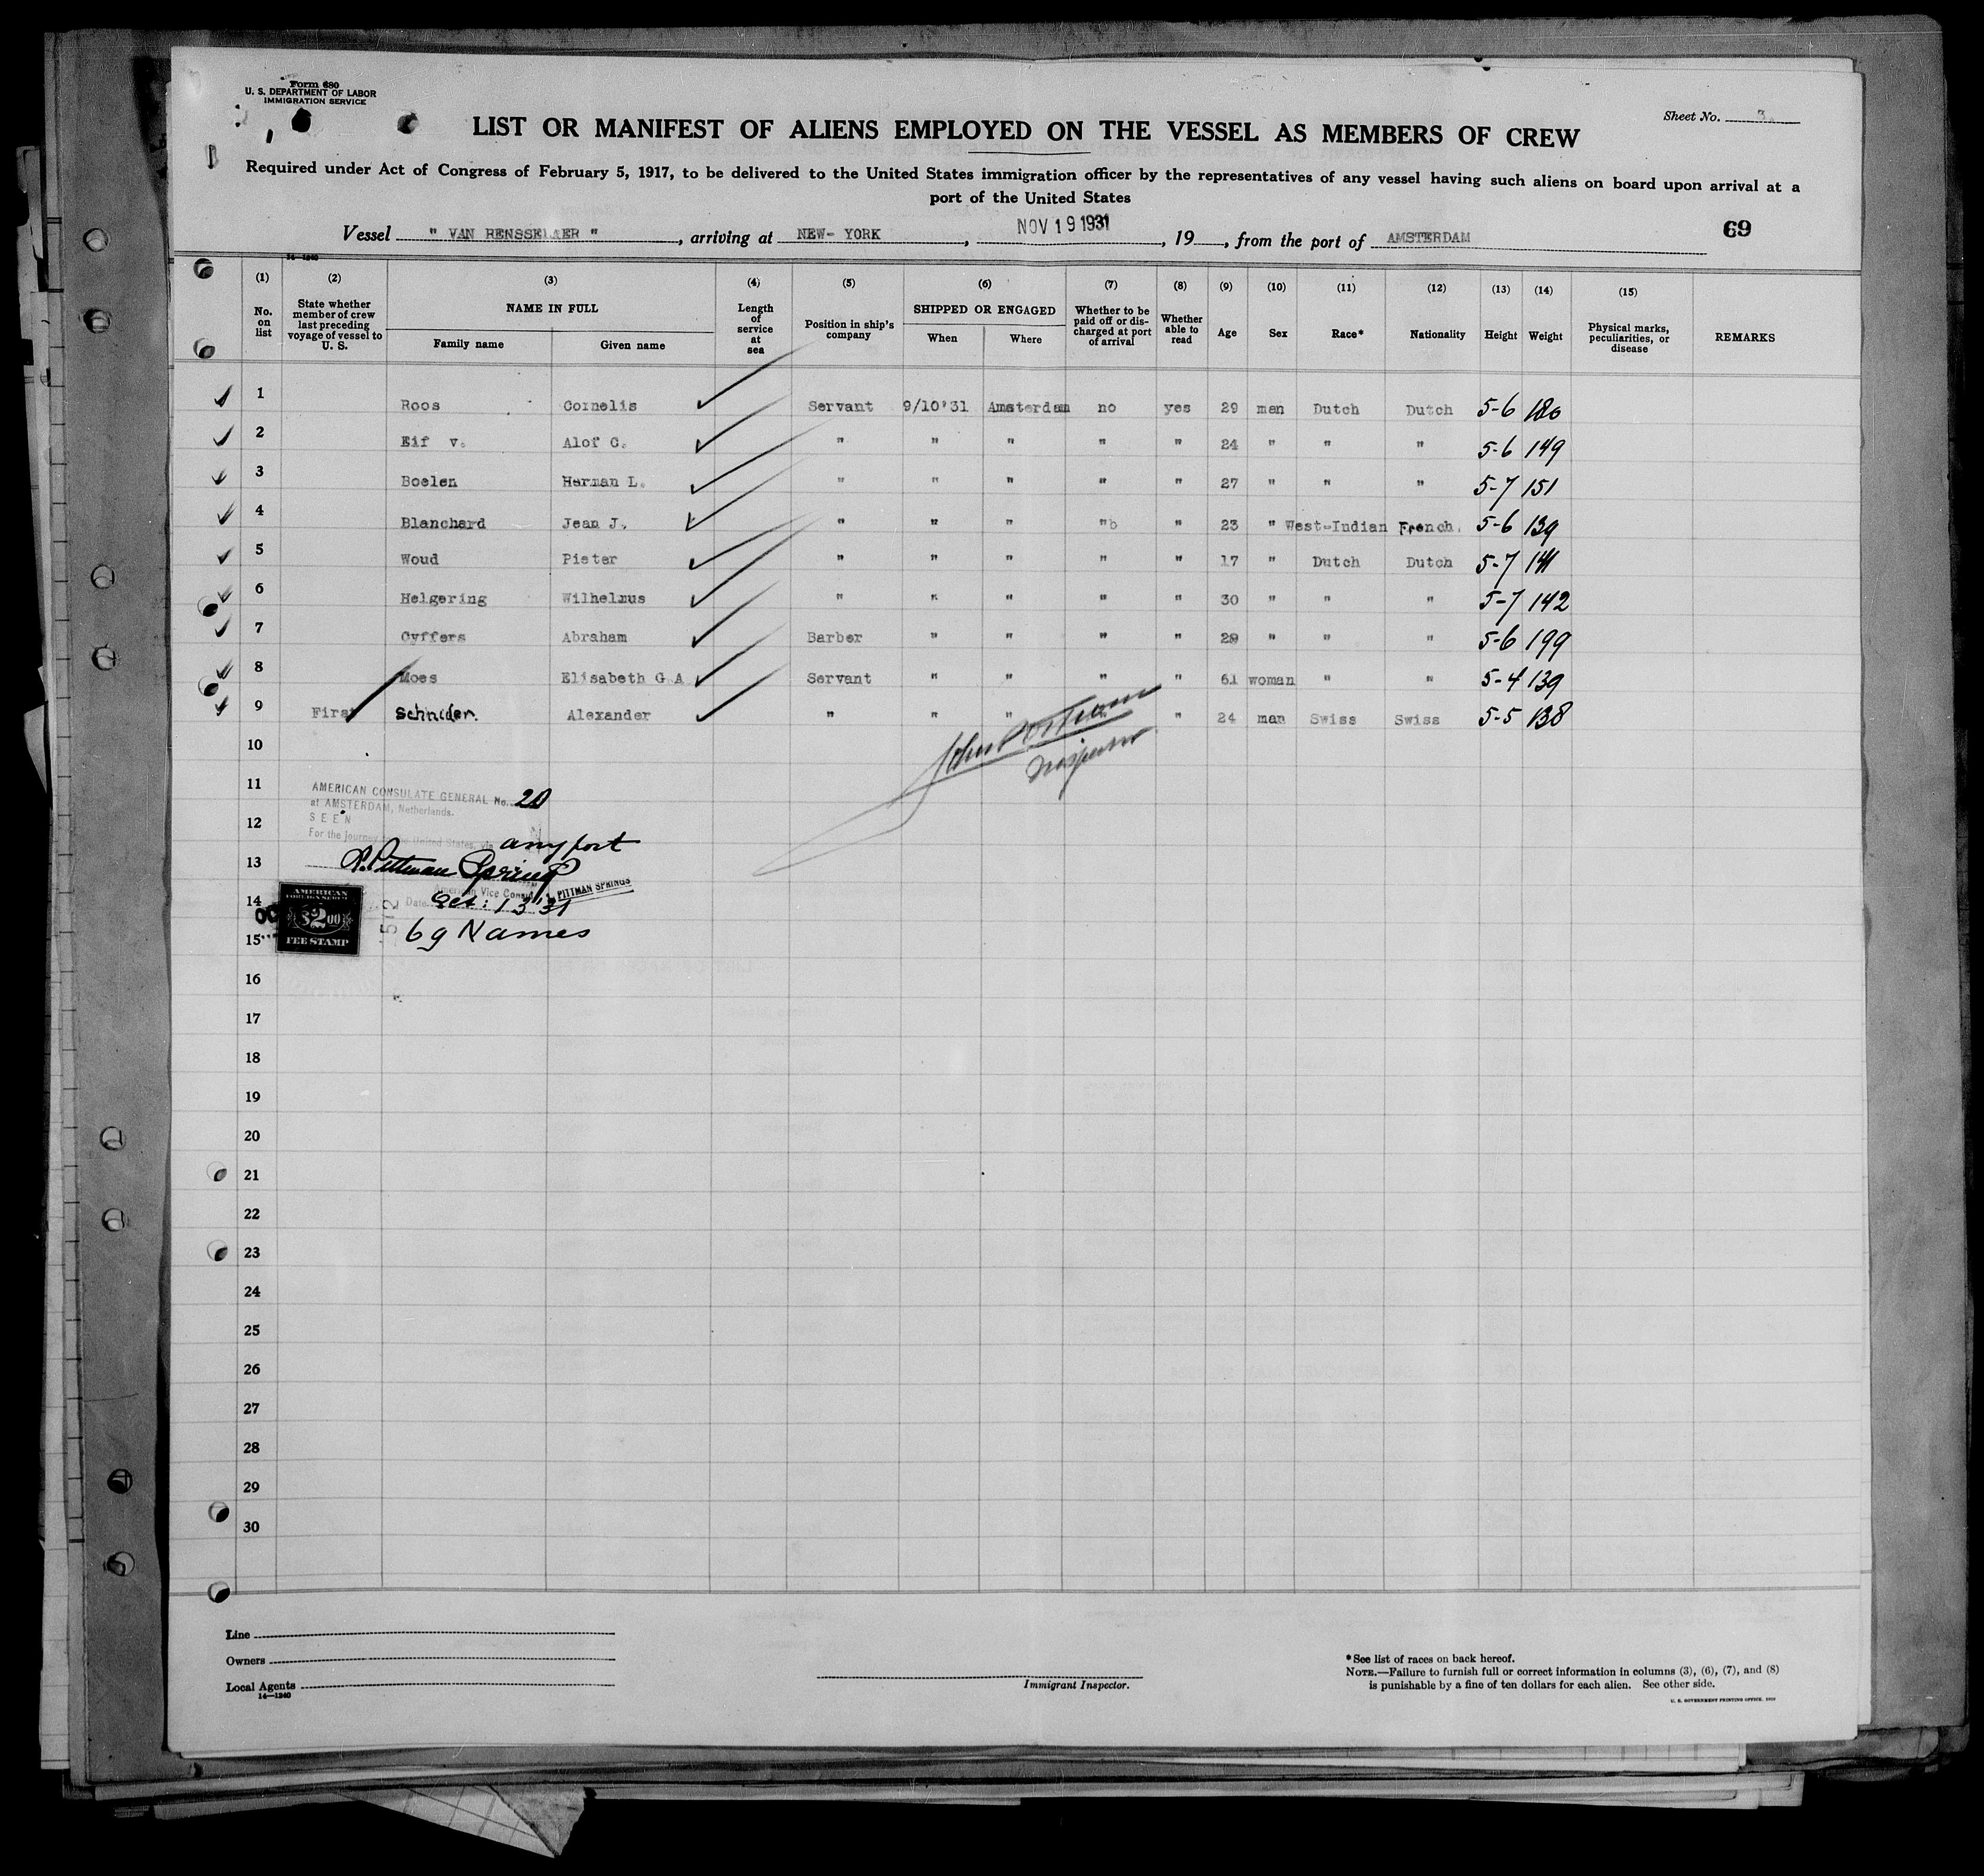 Form 680
U. S. DEPARTMENT OF LABOR
IMMIGRATION SERVICE
Sheet No. 3.
LIST OR MANIFEST OF ALIENS EMPLOYED ON THE VESSEL AS MEMBERS OF CREW
Required under Act of Congress of February 5, 1917, to be delivered to the United States immigration officer by the representatives of any vessel having such aliens on board upon arrival at a
port of the United States
Vessel " VAN RENSSELAER ", arriving at NEW- YORK, NOV 19 1931, 19 , from the port of AMSTERDAM
69
14-1240
(1) (2) (3) (4) (5) (6) (7) (8) (9) (10) (11) (12) (13) (14) (15)
No. on list
State whether member of crew last preceding voyage of vessel to U. S.
NAME IN FULL
Family name
Given name
Length of service at sea
Position in ship's company
SHIPPED OR ENGAGED
When
Where
Whether to be paid off or discharged at port of arrival
Whether able to read
Age
Sex
Race*
Nationality
Height
Weight
Physical marks, peculiarities, or disease
REMARKS
1 Roos Cornelis Servant 9/10'31 Amsterdam no yes 29 man Dutch Dutch 5-6 180
2 Eif v. Alof C. " " " " " 24 " " " 5-6 149
3 Boelen Herman L. " " " " " 27 " " " 5-7 151
4 Blanchard Jean J. " " " " " 23 " West-Indian French. 5-6 139
5 Woud Pieter " " " " " 17 " Dutch Dutch 5-7 141
6 Helgering Wilhelmus " " " " " 30 " " " 5-7 142
7 Cyffers Abraham Barber " " " " 29 " " " 5-6 199
8 Moes Elisabeth G A Servant " " " " 61 woman " " 5-4 139
9 First Schnider. Alexander " " " " 24 man Swiss Swiss 5-5 138
10
Inspector
11
AMERICAN CONSULATE GENERAL No. 20
at AMSTERDAM, Netherlands.
12
SEEN
For the journey to the United States, via any port
13
R. Pittman Springs
American Vice Consul PITTMAN SPRINGS
14
Date Oct: 13'31
AMERICAN
FOREIGN SERVICE
$2.00
FEE STAMP
512
15
69 Names
16
17
18
19
20
21
22
23
24
25
26
27
28
29
30
Line
Owners
Local Agents
14—1240
Immigrant Inspector.
*See list of races on back hereof.
NOTE.—Failure to furnish full or correct information in columns (3), (6), (7), and (8)
is punishable by a fine of ten dollars for each alien. See other side.